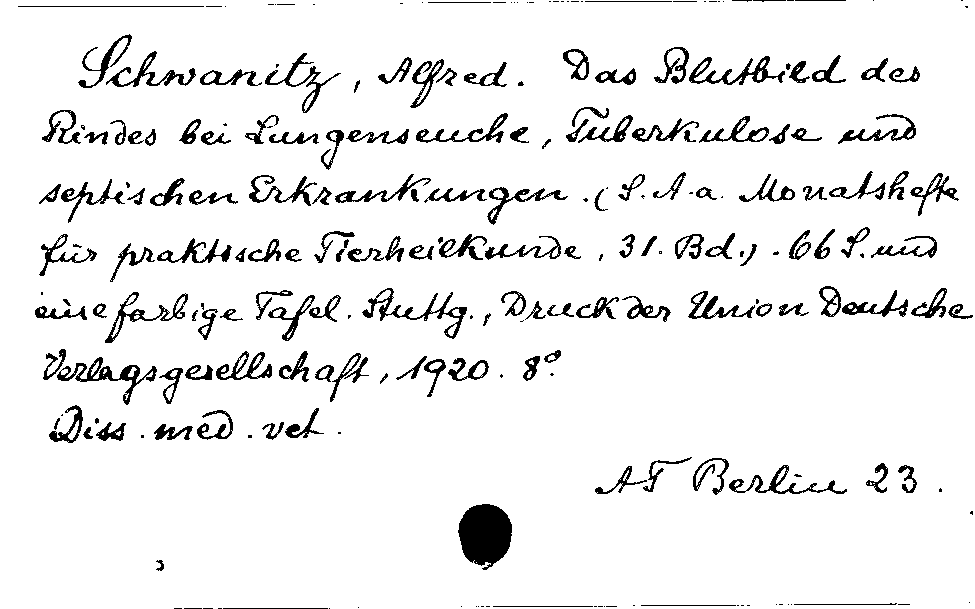 Schwanitz, Alfred. Das Blutbild des
Rindes bei Lungenseuche, Tuberkulose und
septischen Erkrankungen. (S. A. a. Monatshefte
für praktische Tierheilkunde, 31. Bd.). 66 S. und
eine farbige Tafel. Stuttg., Druck der Union Deutsche
Verlagsgesellschaft, 1920. 8°.
Diss. med. vet.
AT Berlin 23.